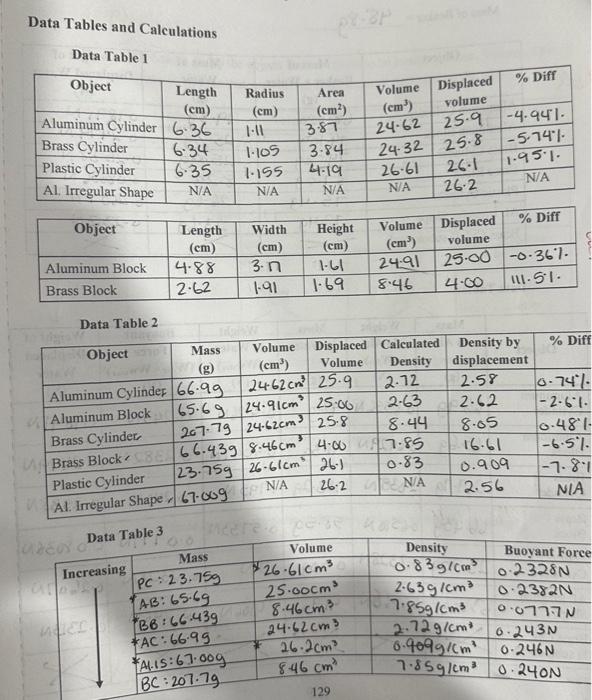 Data Tables and Calculations
Data Table 1
Object Length (cm) Radius (cm) Area (cm²) Volume (cm³) Displaced volume % Diff
Aluminum Cylinder 6.36 1.11 3.87 24.62 25.9 -4.94%.
Brass Cylinder 6.34 1.105 3.84 24.32 25.8 -5.74%.
Plastic Cylinder 6.35 1.155 4.19 26.61 26.1 1.95%.
Al. Irregular Shape N/A N/A N/A N/A 26.2 N/A
Object Length (cm) Width (cm) Height (cm) Volume (cm³) Displaced volume % Diff
Aluminum Block 4.88 3.17 1.61 24.91 25.00 -0.36%.
Brass Block 2.62 1.91 1.69 8.46 4.00 111.5%.
Data Table 2
Object Mass (g) Volume (cm³) Displaced Volume Calculated Density Density by displacement % Diff
Aluminum Cylinder 66.9g 24.62cm³ 25.9 2.72 2.58 0.74%.
Aluminum Block 65.6g 24.91cm³ 25.00 2.63 2.62 -2.6%.
Brass Cylinder 207.7g 24.62cm³ 25.8 8.44 8.05 0.48%.
Brass Block 66.43g 8.46cm³ 4.00 7.85 16.61 -6.5%.
Plastic Cylinder 23.75g 26.61cm³ 26.1 0.83 0.909 -7.8%
Al. Irregular Shape 67.00g N/A 26.2 N/A 2.56 N/A
Data Table 3
Increasing Mass Volume Density Buoyant Force
PC: 23.75g *26.61cm³ 0.83g/cm³ 0.2328N
*AB: 65.6g 25.00cm³ 2.63g/cm³ 0.2382N
*BB: 66.43g 8.46cm³ 7.85g/cm³ 0.0777N
*AC: 66.9g 24.62cm³ 2.72g/cm³ 0.243N
*Al.IS: 67.00g * 26.2cm³ 0.909g/cm³ 0.246N
BC: 207.7g 8.46 cm³ 7.85g/cm³ 0.240N
129